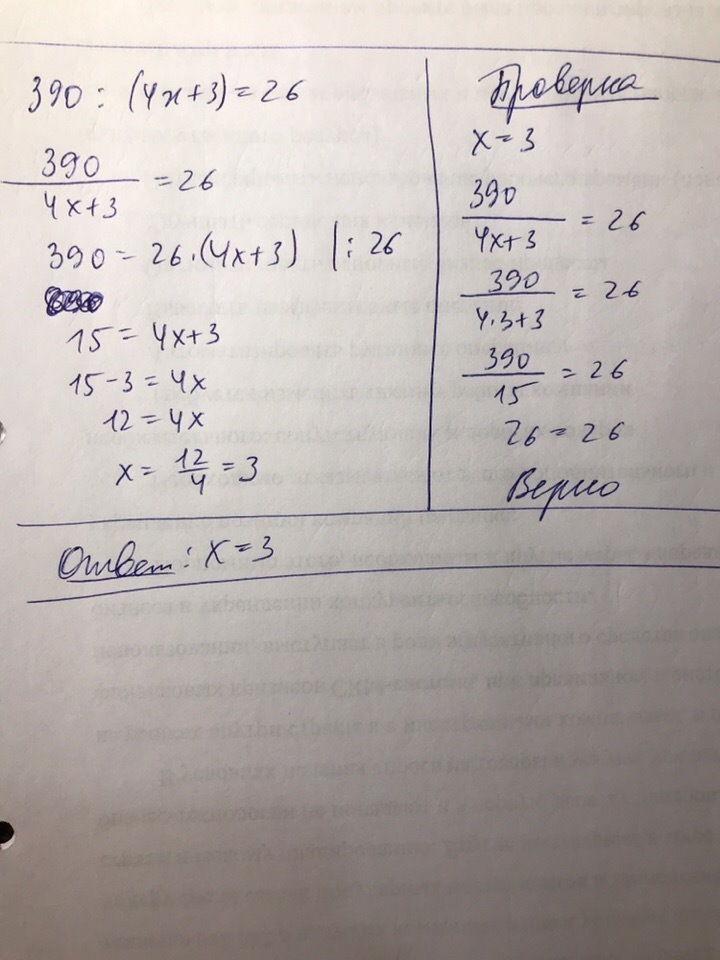 390 : (4x+3) = 26
390
4x+3
= 26
390 = 26·(4x+3) | : 26
15 = 4x+3
15-3 = 4x
12 = 4x
x = 12/4 = 3
Проверка
x = 3
390
4x+3
= 26
390
4·3+3
= 26
390
15
= 26
26 = 26
Верно
Ответ: x = 3